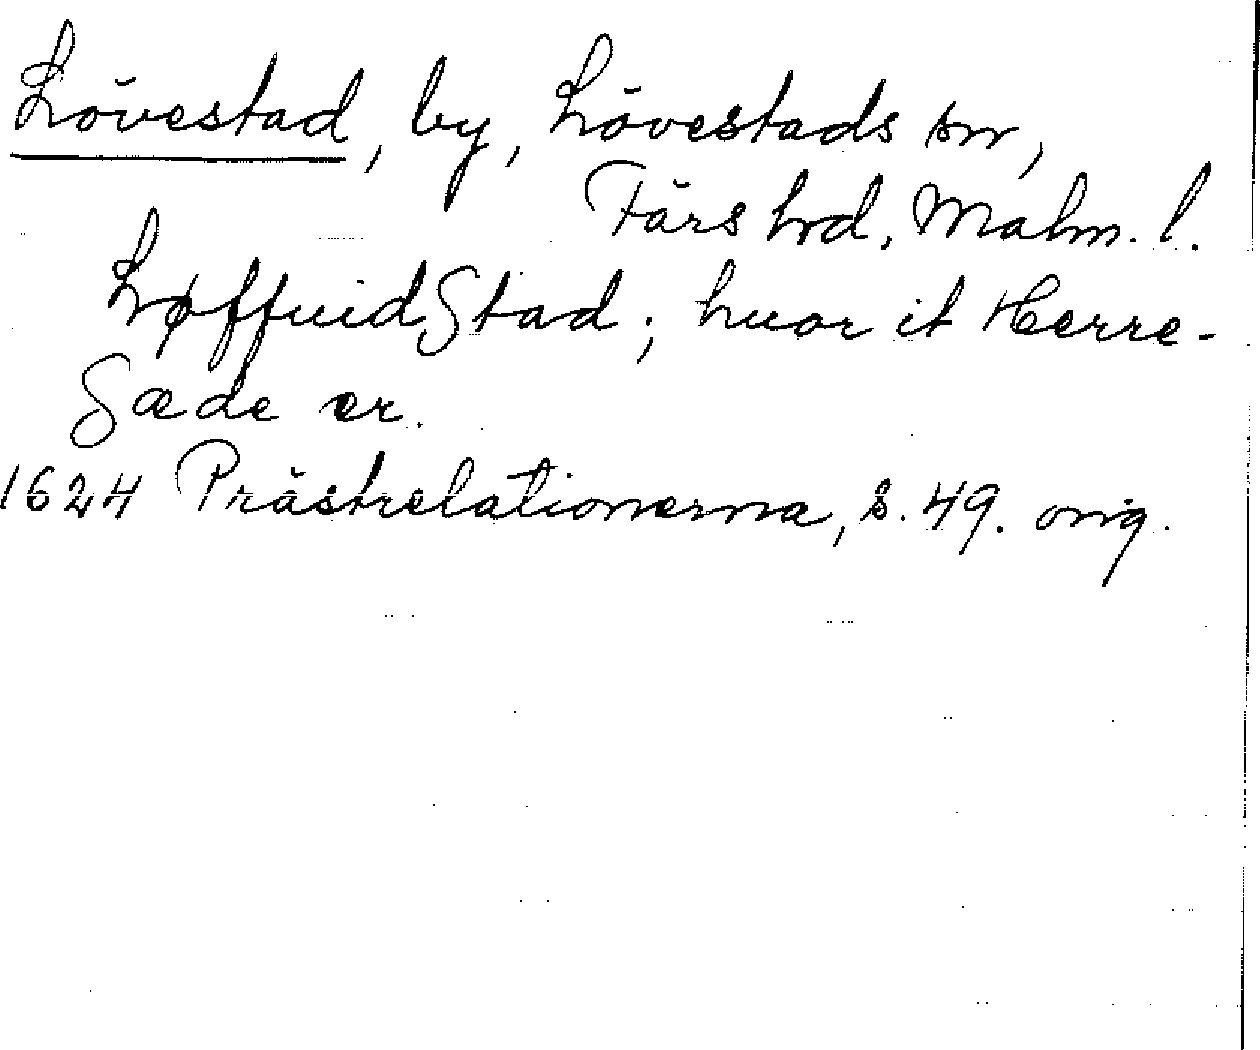 Lövestad, by, Lövestads sn,
Färs hrd, Malm. l.
LøffuidStad; huor it Herre-
Sæde er.
1624 Prästrelationerna, s. 49. orig.